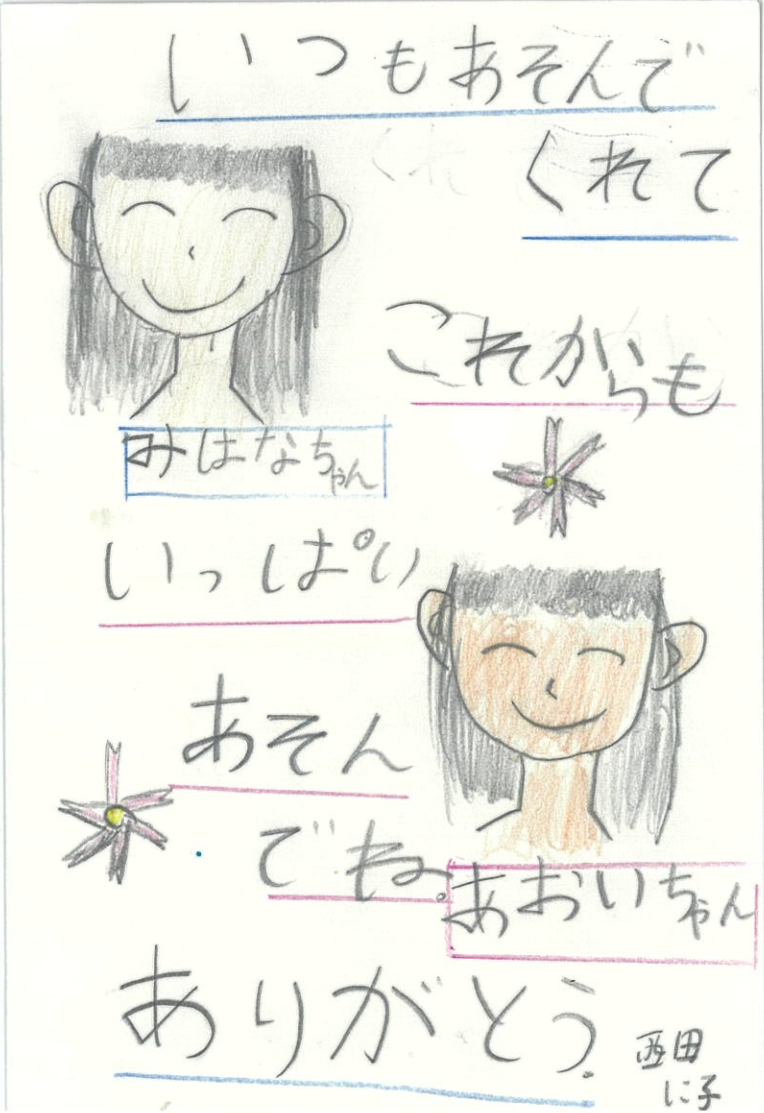 いつもあそんで
くれて
これからも
みはなちゃん
いっぱい
あそん
でね。
あおいちゃん
ありがとう。
西田
に子